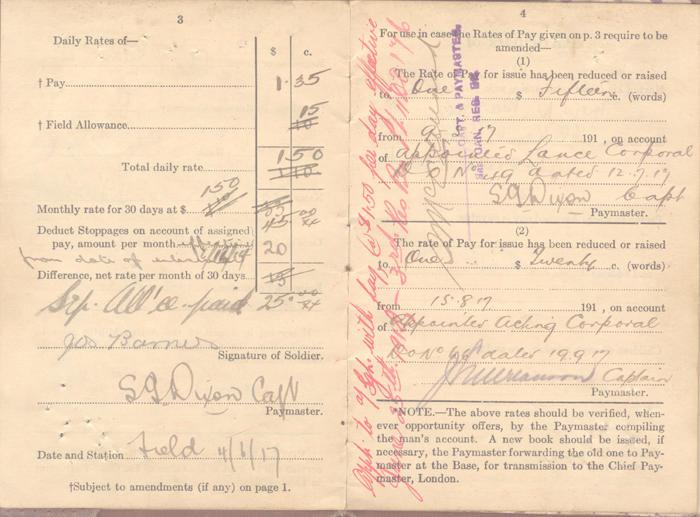 3
Daily Rates of—
$ c.
† Pay 1.35
15
† Field Allowance 10
Total daily rate 1.50
1.10
1.50
Monthly rate for 30 days at $
45.00
Deduct Stoppages on account of assigned
pay, amount per month 20
from date of
Difference, net rate per month of 30 days
Sep. All'ce paid 25.00
Jos Barnes
Signature of Soldier.
S G Dixon Capt
Paymaster.
Date and Station Field 4/6/17
†Subject to amendments (if any) on page 1.
4
For use in case the Rates of Pay given on p. 3 require to be
amended—
(1)
The Rate of Pay for issue has been reduced or raised
to One $ Fifteen c. (words)
from 9 7 191 , on account
of Appointed Lance Corporal
dated 12.7.17
S G Dixon Capt
Paymaster.
(2)
The rate of Pay for issue has been reduced or raised
to One $ Twenty c. (words)
from 15.8.17 191 , on account
of Appointed Acting Corporal
dated 19.9.17
Captain
Paymaster.
*NOTE.—The above rates should be verified, when-
ever opportunity offers, by the Paymaster compiling
the man's account. A new book should be issued, if
necessary, the Paymaster forwarding the old one to Pay-
master at the Base, for transmission to the Chief Pay-
master, London.
with pay @ $1.50 per day effective
CAPT. & PAYMASTER,